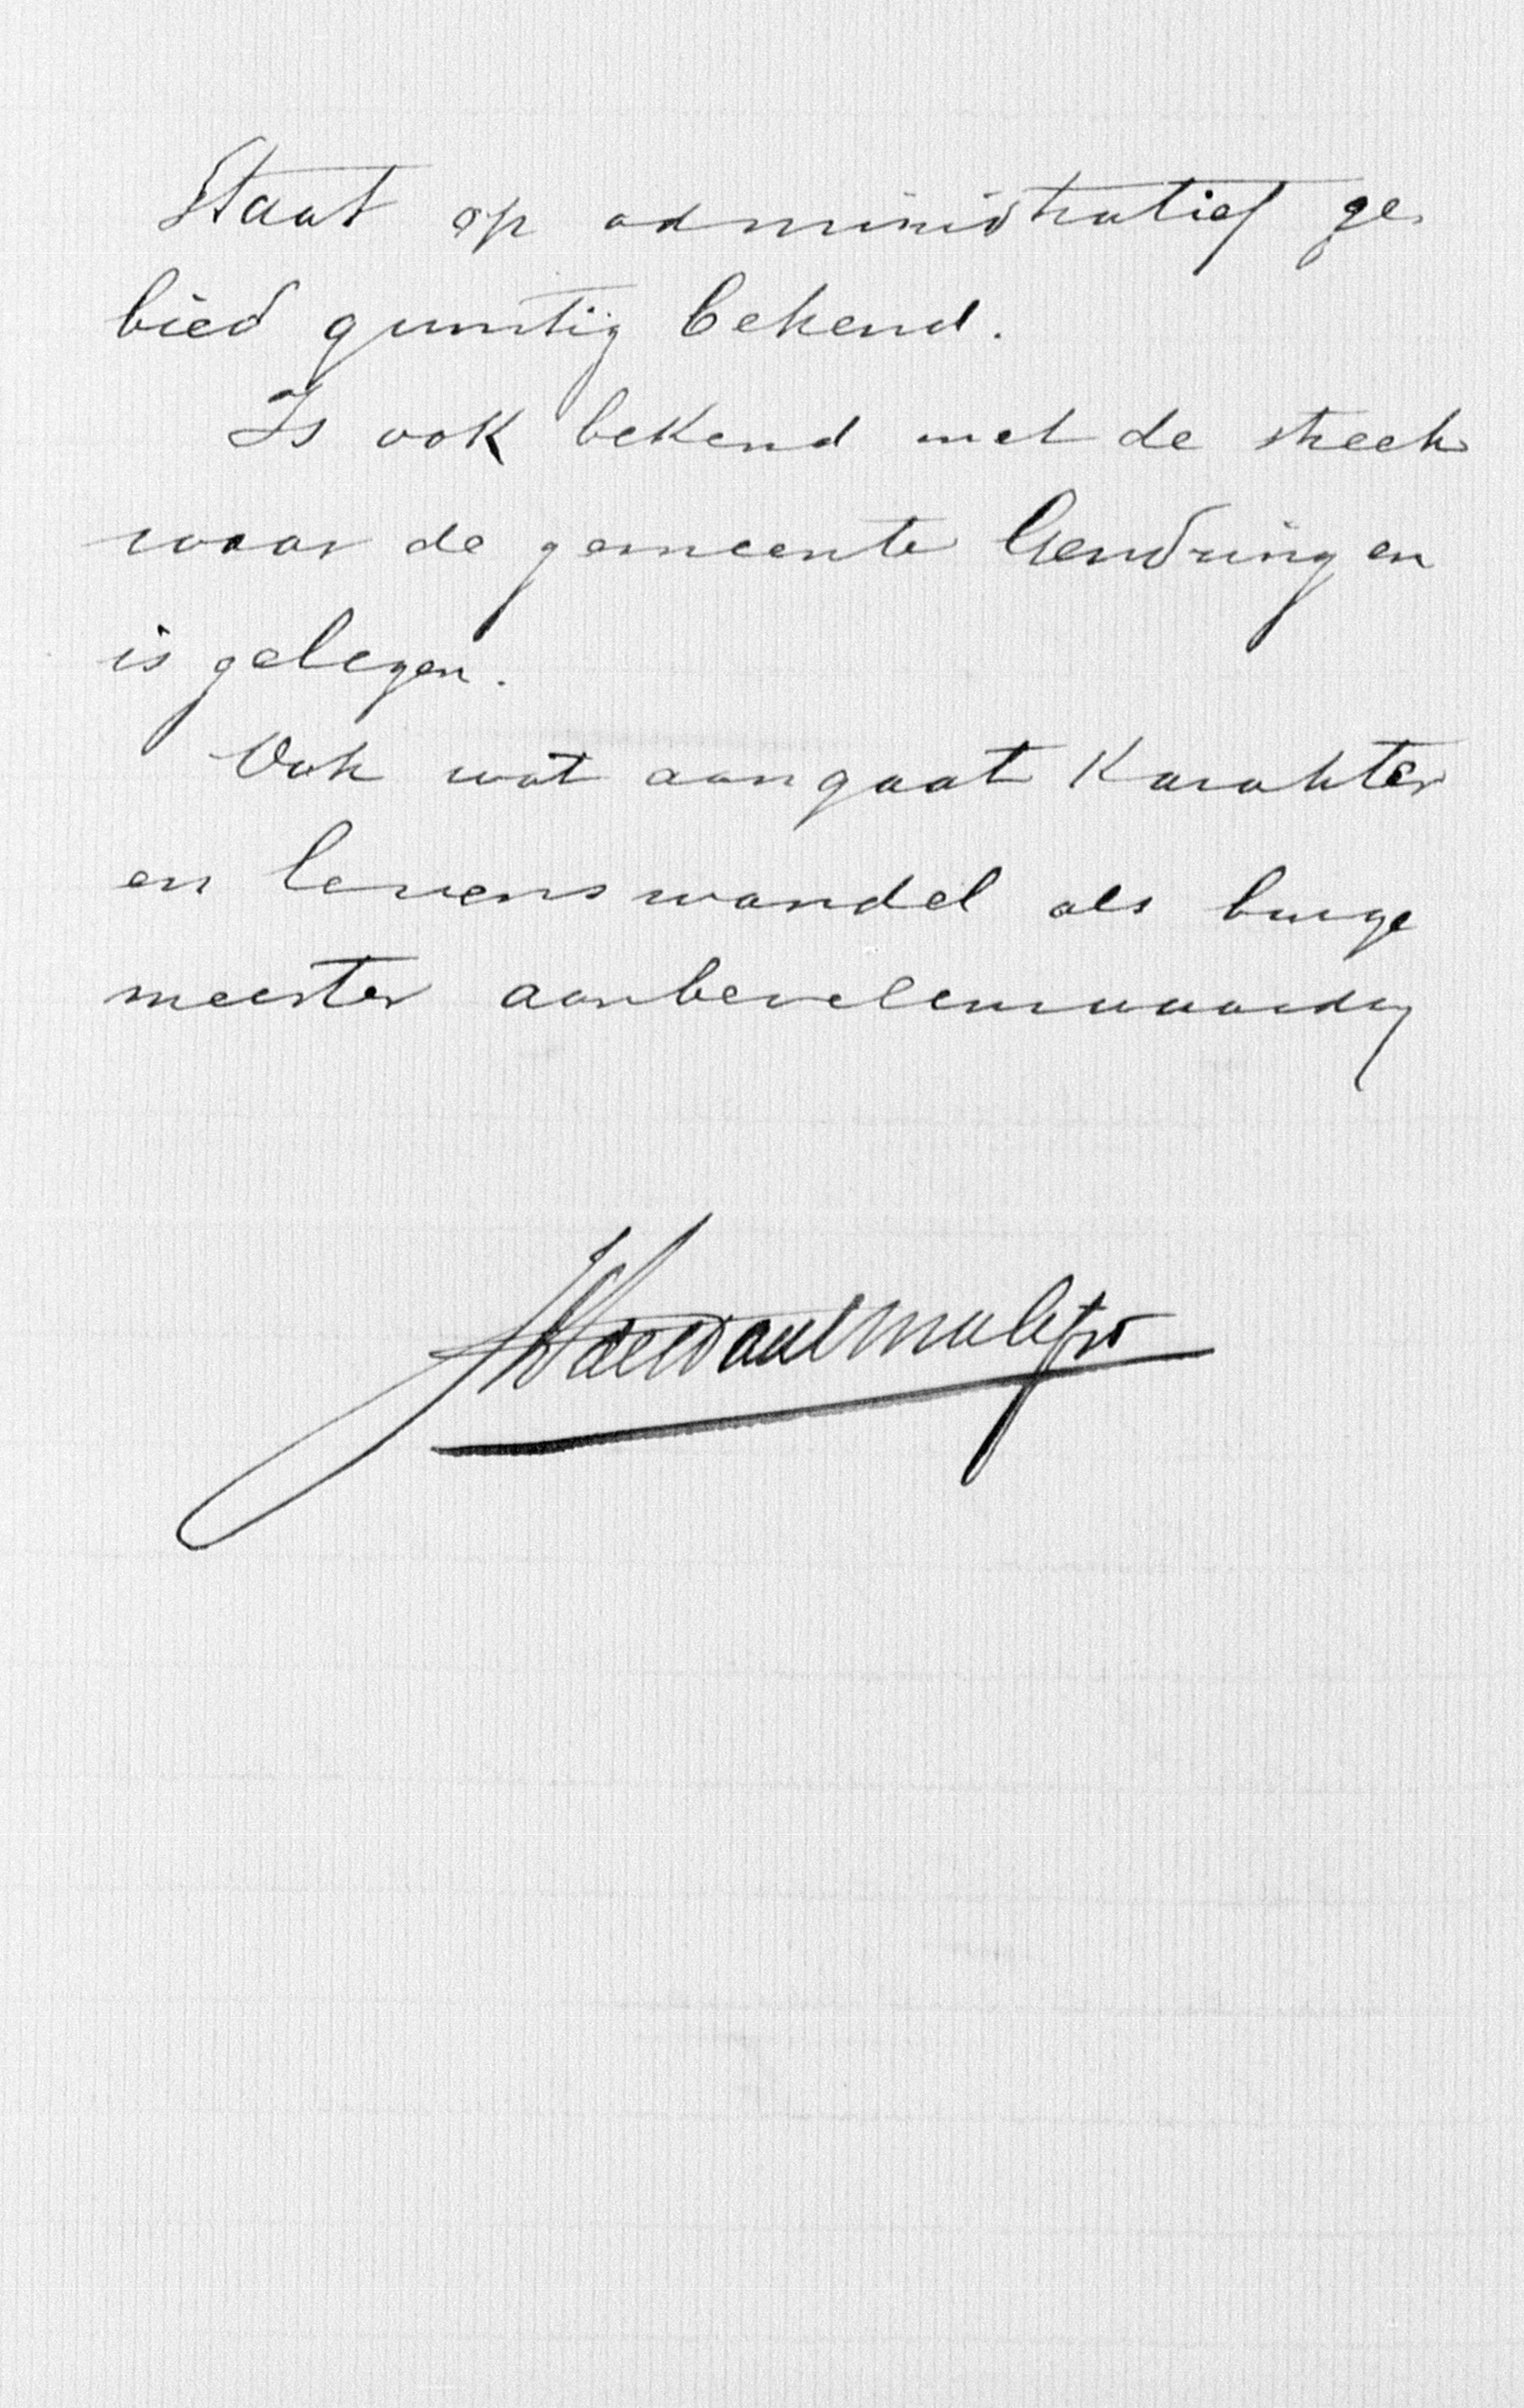 Staat op administratief ge-
bied gunstig bekend.
Is ook bekend met de streek
waar de gemeente Gendringen
is gelegen.
Ook wat aangaat karakter
en levenswandel als burge
meester aanbevelenswaardig